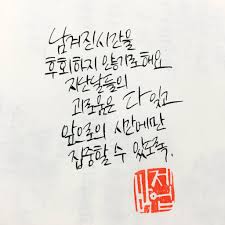 남겨진 시간을
후회하지 않기로 해요
지난날들의
괴로움은 다 잊고
앞으로의 시간에만
집중할 수 있도록.